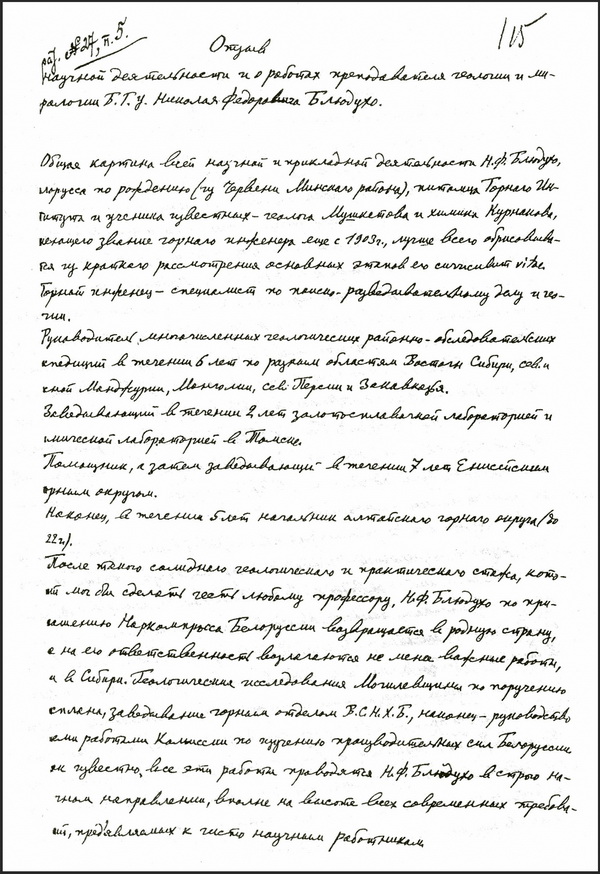 115
раз. №27, п.5.
Отзыв
научной деятельности и о работах преподавателя геологии и ми-
ралогии Б.Г.У. Николая Федоровича Блюдухо.
Общая картина всей научной и прикладной деятельности Н.Ф. Блюдухо,
лорусса по рождению (из Червени Минскаго района), питомца Горнаго Ин-
титута и ученика известных – геолога Мушкетова и химика Курнакова,
меющего звание горнаго инженера еще с 1903г., лучше всего обрисовыва-
тся из краткаго рассмотрения основных этапов его vitae.
Горный инженер – специалист по поиско-разведывательному делу и гео-
гии.
Руководитель многочисленных геологических районно-обследовательских
кспедиций в течении 6 лет по разным областям Восточн Сибири, сев. и
жной Манджурии, Монголии, сев. Персии и Закавказья.
Заведывающий в течении 2 лет золотосплавочной лабораторией и
имической лабораторией в Томске.
Помощник, а затем заведывающий в течении 7 лет Енисейским
орным округом.
Наконец, в течении 5 лет начальник алтайскаго горнаго округа (до
22 г.).
После такого солиднаго геологическаго и практическаго стажа, кото-
й мог бы сделать честь любому профессору, Н.Ф. Блюдухо по при-
ашению Наркомпросса Белоруссии возвращается в родную страну,
е на его ответственность возлагаются не менее важные работы,
и в Сибири. Геологические исследования Могилевщины по поручению
сплана, заведывание горным отделом В.С.Н.Х.Б., наконец – руководство
еми работами Комиссии по изучению производительных сил Белоруссии
ак известно, все эти работы проводятся Н.Ф. Блюдухо в строго на-
чном направлении, вполне на высоте всех современных требова-
ий, предъявляемых к чисто научным работникам.